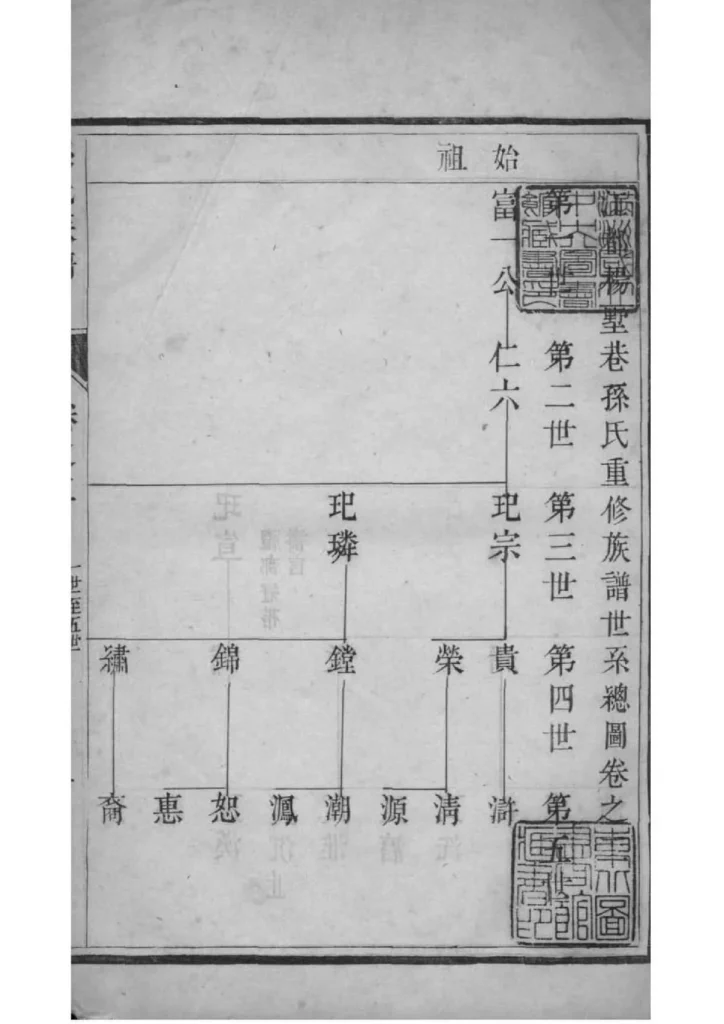 江都楊墅巷孫氏重修族譜世系總圖卷之
第一世 第二世 第三世 第四世 第五世
始祖
富一公 仁六 玘宗 貴 滸
榮 清
源
玘璘 鏜 潮
鳳
錦 恕
惠
繡 裔
一世至五世